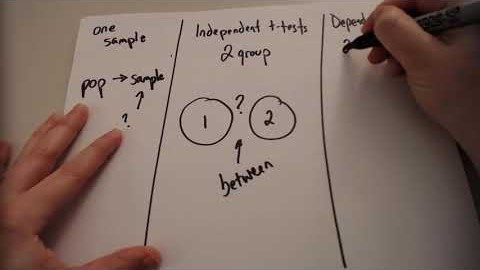 one
sample
pop → sample
?
Independent t-tests
2 group
1 ? 2
between
Depend
2